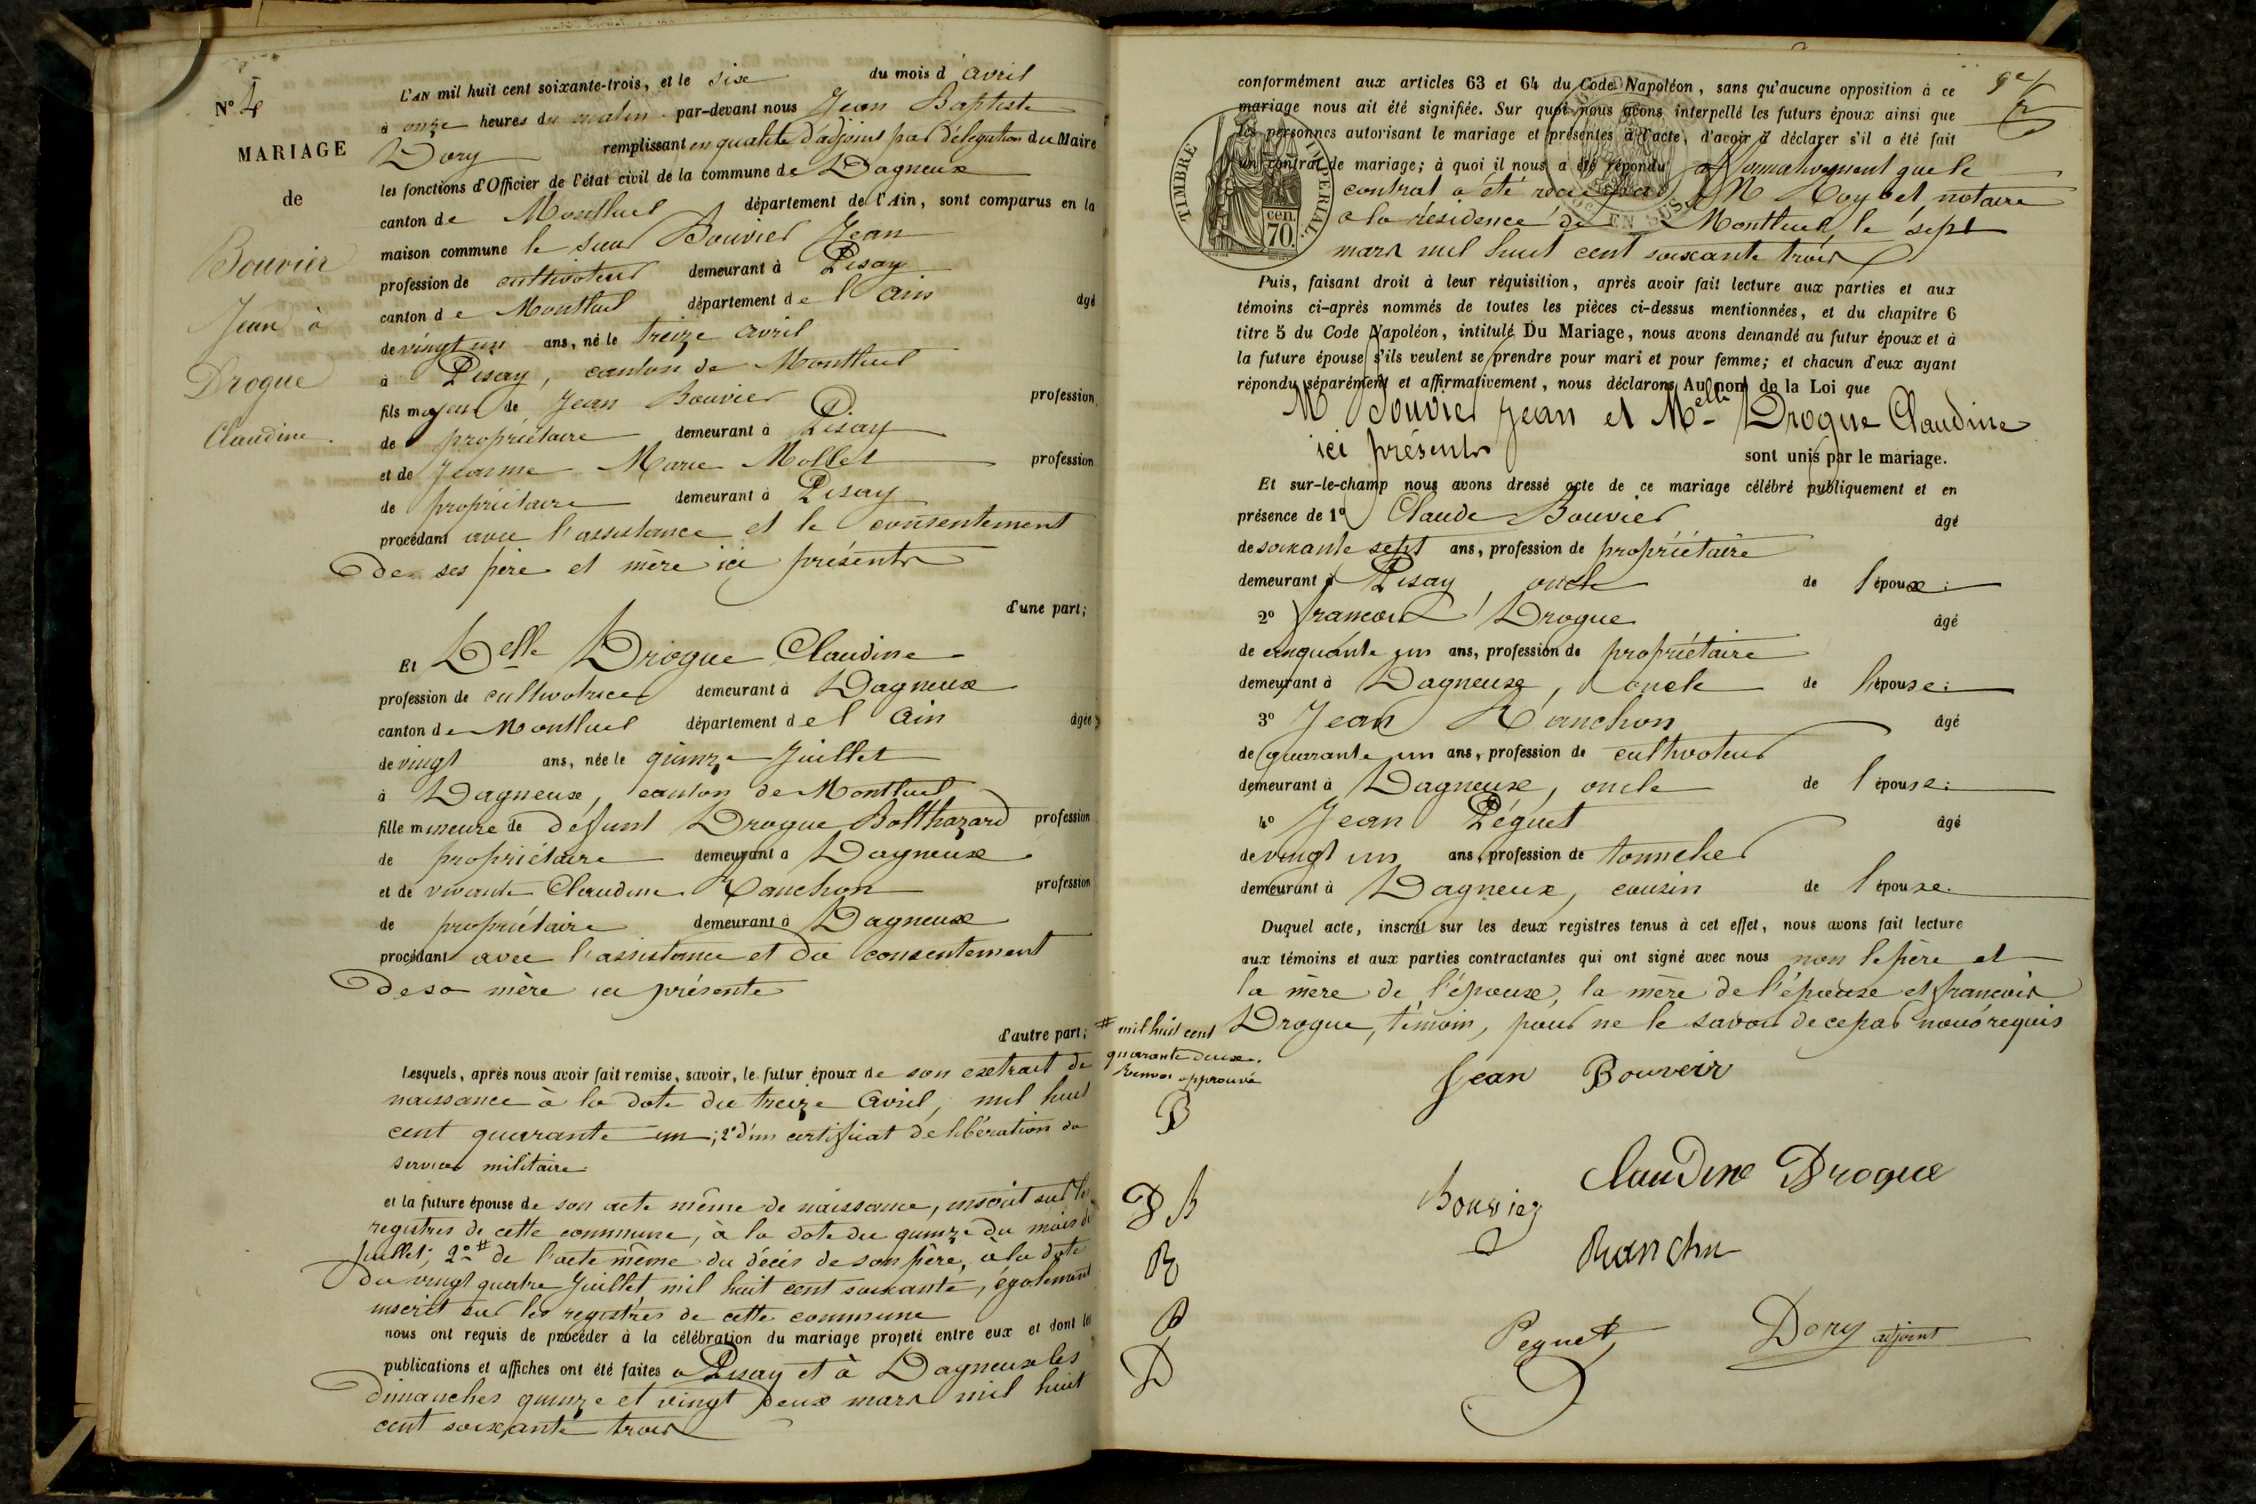 N° 4
MARIAGE
de
Bouvier
Jean à
Drogue
Claudine.
L'AN mil huit cent soixante-trois, et le six du mois d'avril
à onze heures du matin par-devant nous Jean Baptiste
Dory remplissant en qualité d'adjoint par délégation du Maire
les fonctions d'Officier de l'état civil de la commune de Dagneux
canton de Montluel département de l'Ain, sont comparus en la
maison commune le sieur Bouvier Jean
profession de cultivateur demeurant à Pisay
canton de Montluel département de l'Ain âgé
de vingt un ans, né le treize avril
à Pisay, canton de Montluel
fils majeur de Jean Bouvier profession
de propriétaire demeurant à Pisay
et de Jeanne Marie Mollet profession
de propriétaire demeurant à Pisay
procédant avec l'assistance et le consentement
de ses père et mère ici présents
d'une part;
Et Delle Drogue Claudine
profession de cultivatrice demeurant à Dagneux
canton de Montluel département de l'Ain âgée
de vingt ans, née le quinze Juillet
à Dagneux, canton de Montluel
fille mineure de défunt Drogue Balthazard profession
de propriétaire demeurant à Dagneux
et de vivante Claudine Ranchon profession
de propriétaire demeurant à Dagneux
procédant avec l'assistance et du consentement
de sa mère ici présente
d'autre part;
Lesquels, après nous avoir fait remise, savoir, le futur époux de son extrait de
naissance à la date du treize avril, mil huit
cent quarante un; 2° d'un certificat de libération du
service militaire
et la future épouse de son acte même de naissance, inscrit sur les
registres de cette commune, à la date du quinze du mois de
Juillet; 2° # de l'acte même du décès de son père, à la date
du vingt quatre Juillet mil huit cent soixante, également
inscrit sur les registres de cette commune
nous ont requis de procéder à la célébration du mariage projeté entre eux et dont les
publications et affiches ont été faites à Pisay et à Dagneux les
dimanches quinze et vingt deux mars mil huit
cent soixante trois
TIMBRE IMPÉRIAL
70 cen.
conformément aux articles 63 et 64 du Code Napoléon, sans qu'aucune opposition à ce
mariage nous ait été signifiée. Sur quoi nous avons interpellé les futurs époux ainsi que
les personnes autorisant le mariage et présentes à l'acte, d'avoir à déclarer s'il a été fait
un contrat de mariage; à quoi il nous a été répondu affirmativement que le
contrat a été reçu par M Roybet notaire
à la résidence de Montluel, le sept
mars mil huit cent soixante trois
Puis, faisant droit à leur réquisition, après avoir fait lecture aux parties et aux
témoins ci-après nommés de toutes les pièces ci-dessus mentionnées, et du chapitre 6
titre 5 du Code Napoléon, intitulé Du Mariage, nous avons demandé au futur époux et à
la future épouse s'ils veulent se prendre pour mari et pour femme; et chacun d'eux ayant
répondu séparément et affirmativement, nous déclarons Au nom de la Loi que
Mr Bouvier Jean et Melle Drogue Claudine
ici présents sont unis par le mariage.
Et sur-le-champ nous avons dressé acte de ce mariage célébré publiquement et en
présence de 1° Claude Bouvier âgé
de soixante sept ans, profession de propriétaire
demeurant à Pisay, oncle de l'époux;
2° françois Drogue âgé
de cinquante un ans, profession de propriétaire
demeurant à Dagneux, oncle de l'épouse;
3° Jean Ranchon âgé
de quarante un ans, profession de cultivateur
demeurant à Dagneux, oncle de l'épouse;
4° Jean Péguet âgé
de vingt un ans, profession de tonnelier
demeurant à Dagneux, cousin de l'épouse.
Duquel acte, inscrit sur les deux registres tenus à cet effet, nous avons fait lecture
aux témoins et aux parties contractantes qui ont signé avec nous non le père et
la mère de l'époux, la mère de l'épouse et françois
Drogue, témoin, pour ne le savoir de ce par nous requis
# mil huit cent
quarante deux.
Renvoi approuvé
B
D B
R
P
D
Jean Bouveir
Claudine Drogue
Bouvier
Ranchn
Peguet
Dory adjoint